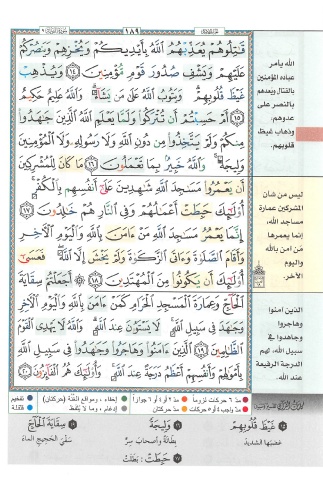 ١٨٩
قَٰتِلُوهُمْ يُعَذِّبْهُمُ ٱللَّهُ بِأَيْدِيكُمْ وَيُخْزِهِمْ وَيَنصُرْكُمْ
عَلَيْهِمْ وَيَشْفِ صُدُورَ قَوْمٍ مُّؤْمِنِينَ ١٤ وَيُذْهِبْ
غَيْظَ قُلُوبِهِمْ وَيَتُوبُ ٱللَّهُ عَلَىٰ مَن يَشَآءُ وَٱللَّهُ عَلِيمٌ حَكِيمٌ
١٥ أَمْ حَسِبْتُمْ أَن تُتْرَكُوا۟ وَلَمَّا يَعْلَمِ ٱللَّهُ ٱلَّذِينَ جَٰهَدُوا۟
مِنكُمْ وَلَمْ يَتَّخِذُوا۟ مِن دُونِ ٱللَّهِ وَلَا رَسُولِهِۦ وَلَا ٱلْمُؤْمِنِينَ
وَلِيجَةً وَٱللَّهُ خَبِيرٌۢ بِمَا تَعْمَلُونَ ١٦ مَا كَانَ لِلْمُشْرِكِينَ
أَن يَعْمُرُوا۟ مَسَٰجِدَ ٱللَّهِ شَٰهِدِينَ عَلَىٰٓ أَنفُسِهِم بِٱلْكُفْرِ
أُو۟لَٰٓئِكَ حَبِطَتْ أَعْمَٰلُهُمْ وَفِى ٱلنَّارِ هُمْ خَٰلِدُونَ ١٧
إِنَّمَا يَعْمُرُ مَسَٰجِدَ ٱللَّهِ مَنْ ءَامَنَ بِٱللَّهِ وَٱلْيَوْمِ ٱلْءَاخِرِ
وَأَقَامَ ٱلصَّلَوٰةَ وَءَاتَى ٱلزَّكَوٰةَ وَلَمْ يَخْشَ إِلَّا ٱللَّهَ فَعَسَىٰٓ
أُو۟لَٰٓئِكَ أَن يَكُونُوا۟ مِنَ ٱلْمُهْتَدِينَ ١٨ أَجَعَلْتُمْ سِقَايَةَ
ٱلْحَآجِّ وَعِمَارَةَ ٱلْمَسْجِدِ ٱلْحَرَامِ كَمَنْ ءَامَنَ بِٱللَّهِ وَٱلْيَوْمِ ٱلْءَاخِرِ
وَجَٰهَدَ فِى سَبِيلِ ٱللَّهِ لَا يَسْتَوُۥنَ عِندَ ٱللَّهِ وَٱللَّهُ لَا يَهْدِى ٱلْقَوْمَ
ٱلظَّٰلِمِينَ ١٩ ٱلَّذِينَ ءَامَنُوا۟ وَهَاجَرُوا۟ وَجَٰهَدُوا۟ فِى سَبِيلِ ٱللَّهِ
بِأَمْوَٰلِهِمْ وَأَنفُسِهِمْ أَعْظَمُ دَرَجَةً عِندَ ٱللَّهِ وَأُو۟لَٰٓئِكَ هُمُ ٱلْفَآئِزُونَ ٢٠
الله يأمر
عباده المؤمنين
بالقتال ويعدهم
بالنصر على
عدوهم،
وذهاب غيظ
قلوبهم.
ليس من شأن
المشركين عمارة
مساجد الله،
إنما يعمرها
من آمن بالله
واليوم
الآخر.
الذين آمنوا
وهاجروا
وجاهدوا في
سبيل الله، لهم
الدرجة الرفيعة
عند الله.
مدّ ٦ حركات لزوماً
مدّ ٢ أو ٤ أو ٦ جوازاً
إخفاء، ومواقع الغنّة (حركتان)
تفخيم
مدّ واجب ٤ أو ٥ حركات
مدّ حركتان
إدغام، وما لا يُلفظ
قلقلة
غَيْظَ قُلُوبِهِمْ
غضبها الشديد
وَلِيجَةً
بطانة وأصحاب سرّ
حَبِطَتْ : بطلت
سِقَايَةَ الْحَآجِّ
سقي الحجيج الماء